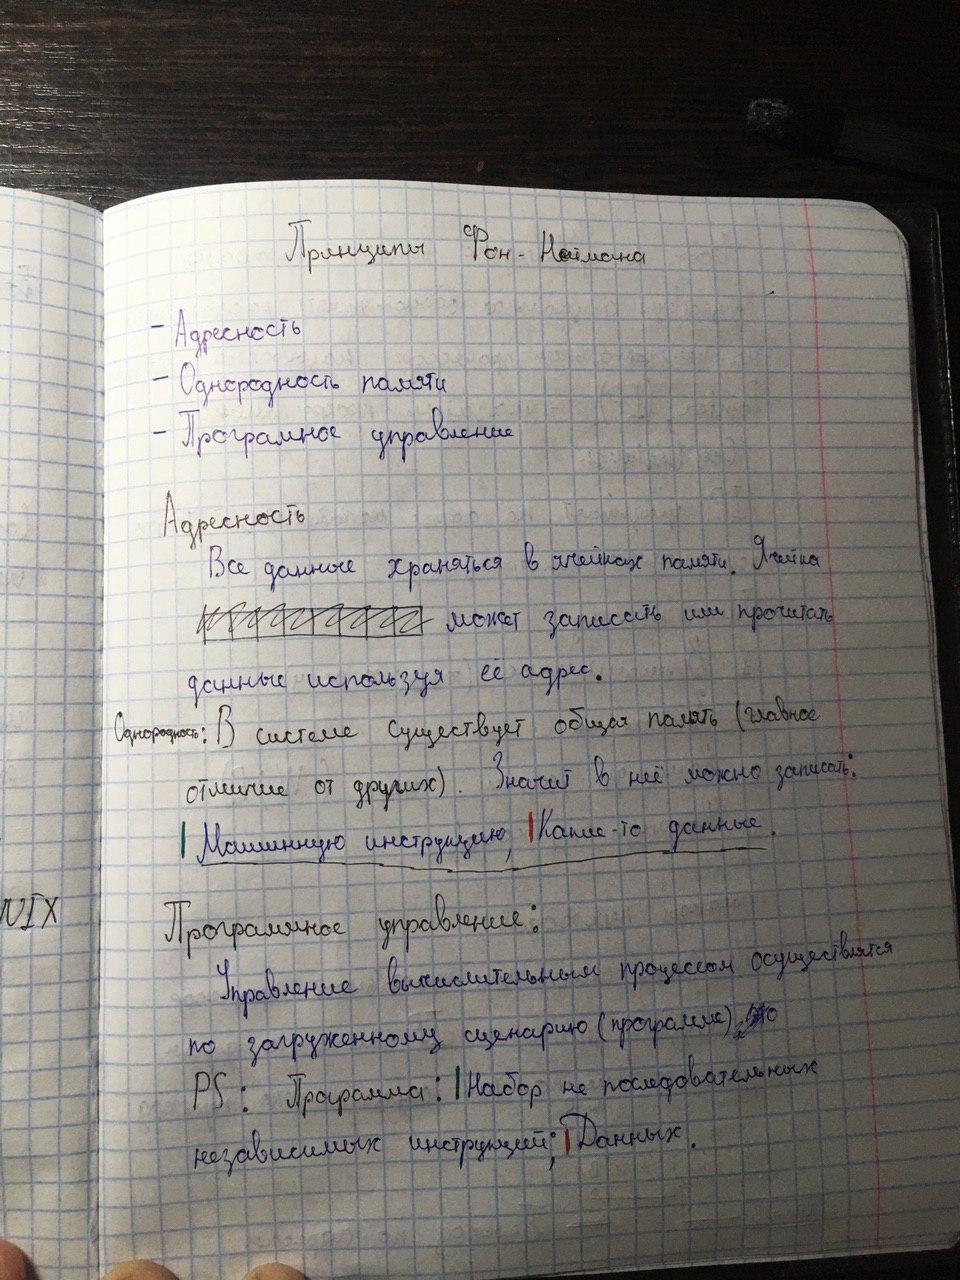 Принципы Фон-Неймана
- Адресность
- Однородность памяти
- Програмное управление
Адресность
Все данные храняться в ячейках памяти. Ячейка
может записать или прочитать
данные используя её адрес.
Однородность: В системе существует общая память (главное
отличие от других). Значит в неё можно записать:
Машинную инструкцию, Какие-то данные.
NIX
Програмное управление:
Управление вычислительным процессом осуществлятся
по загруженному сценарию (программе)
PS: Программа: Набор не последовательных
независимых инструкций; Данных.